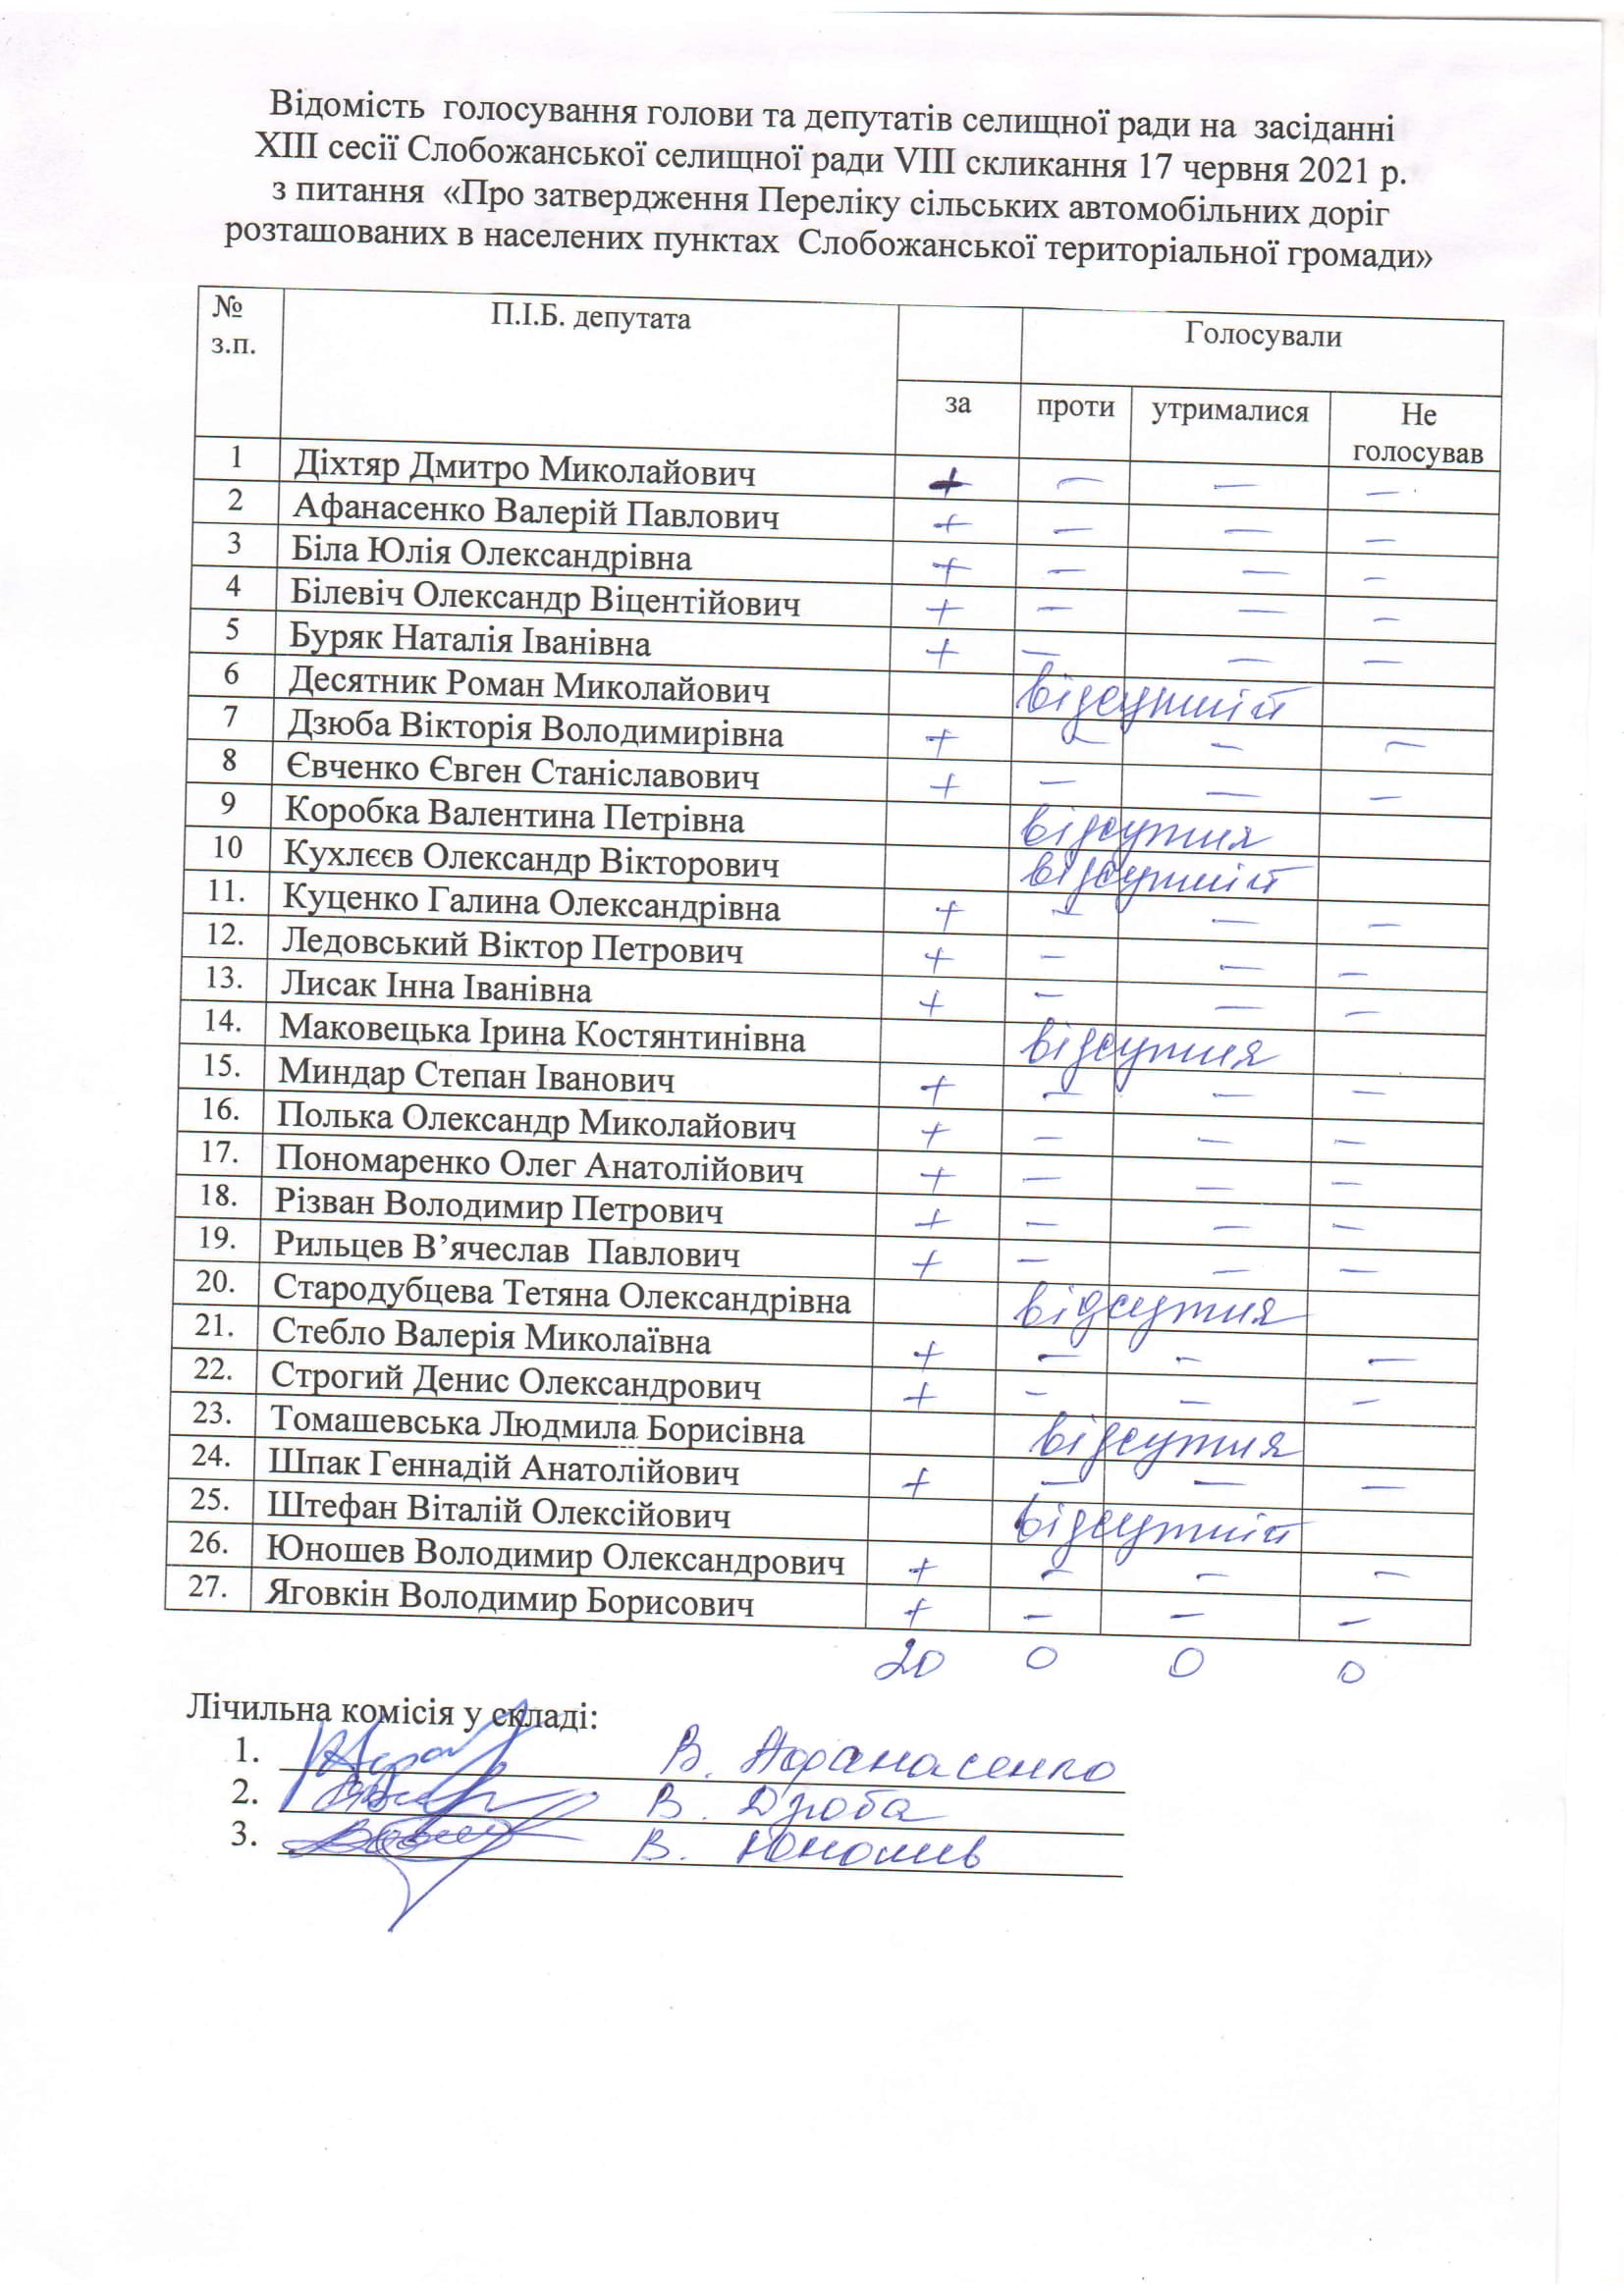 Відомість голосування голови та депутатів селищної ради на засіданні
XIII сесії Слобожанської селищної ради VIII скликання 17 червня 2021 р.
з питання «Про затвердження Переліку сільських автомобільних доріг
розташованих в населених пунктах Слобожанської територіальної громади»
№ з.п. П.І.Б. депутата Голосували
за проти утрималися Не голосував
1 Діхтяр Дмитро Миколайович + — — —
2 Афанасенко Валерій Павлович + — — —
3 Біла Юлія Олександрівна + — — —
4 Білевіч Олександр Віцентійович + — — —
5 Буряк Наталія Іванівна + — — —
6 Десятник Роман Миколайович відсутній
7 Дзюба Вікторія Володимирівна + — — —
8 Євченко Євген Станіславович + — — —
9 Коробка Валентина Петрівна відсутня
10 Кухлєєв Олександр Вікторович відсутній
11. Куценко Галина Олександрівна + — — —
12. Ледовський Віктор Петрович + — — —
13. Лисак Інна Іванівна + — — —
14. Маковецька Ірина Костянтинівна відсутня
15. Миндар Степан Іванович + — — —
16. Полька Олександр Миколайович + — — —
17. Пономаренко Олег Анатолійович + — — —
18. Різван Володимир Петрович + — — —
19. Рильцев В’ячеслав Павлович + — — —
20. Стародубцева Тетяна Олександрівна відсутня
21. Стебло Валерія Миколаївна + — — —
22. Строгий Денис Олександрович + — — —
23. Томашевська Людмила Борисівна відсутня
24. Шпак Геннадій Анатолійович + — — —
25. Штефан Віталій Олексійович відсутній
26. Юношев Володимир Олександрович + — — —
27. Яговкін Володимир Борисович + — — —
20 0 0 0
Лічильна комісія у складі:
1. В. Афанасенко
2. В. Дзюба
3. В. Юношев